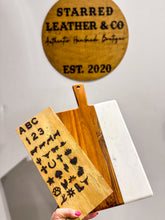 STARRED
LEATHER & CO
Authentic Handmade Boutique
EST. 2020
ABC
123